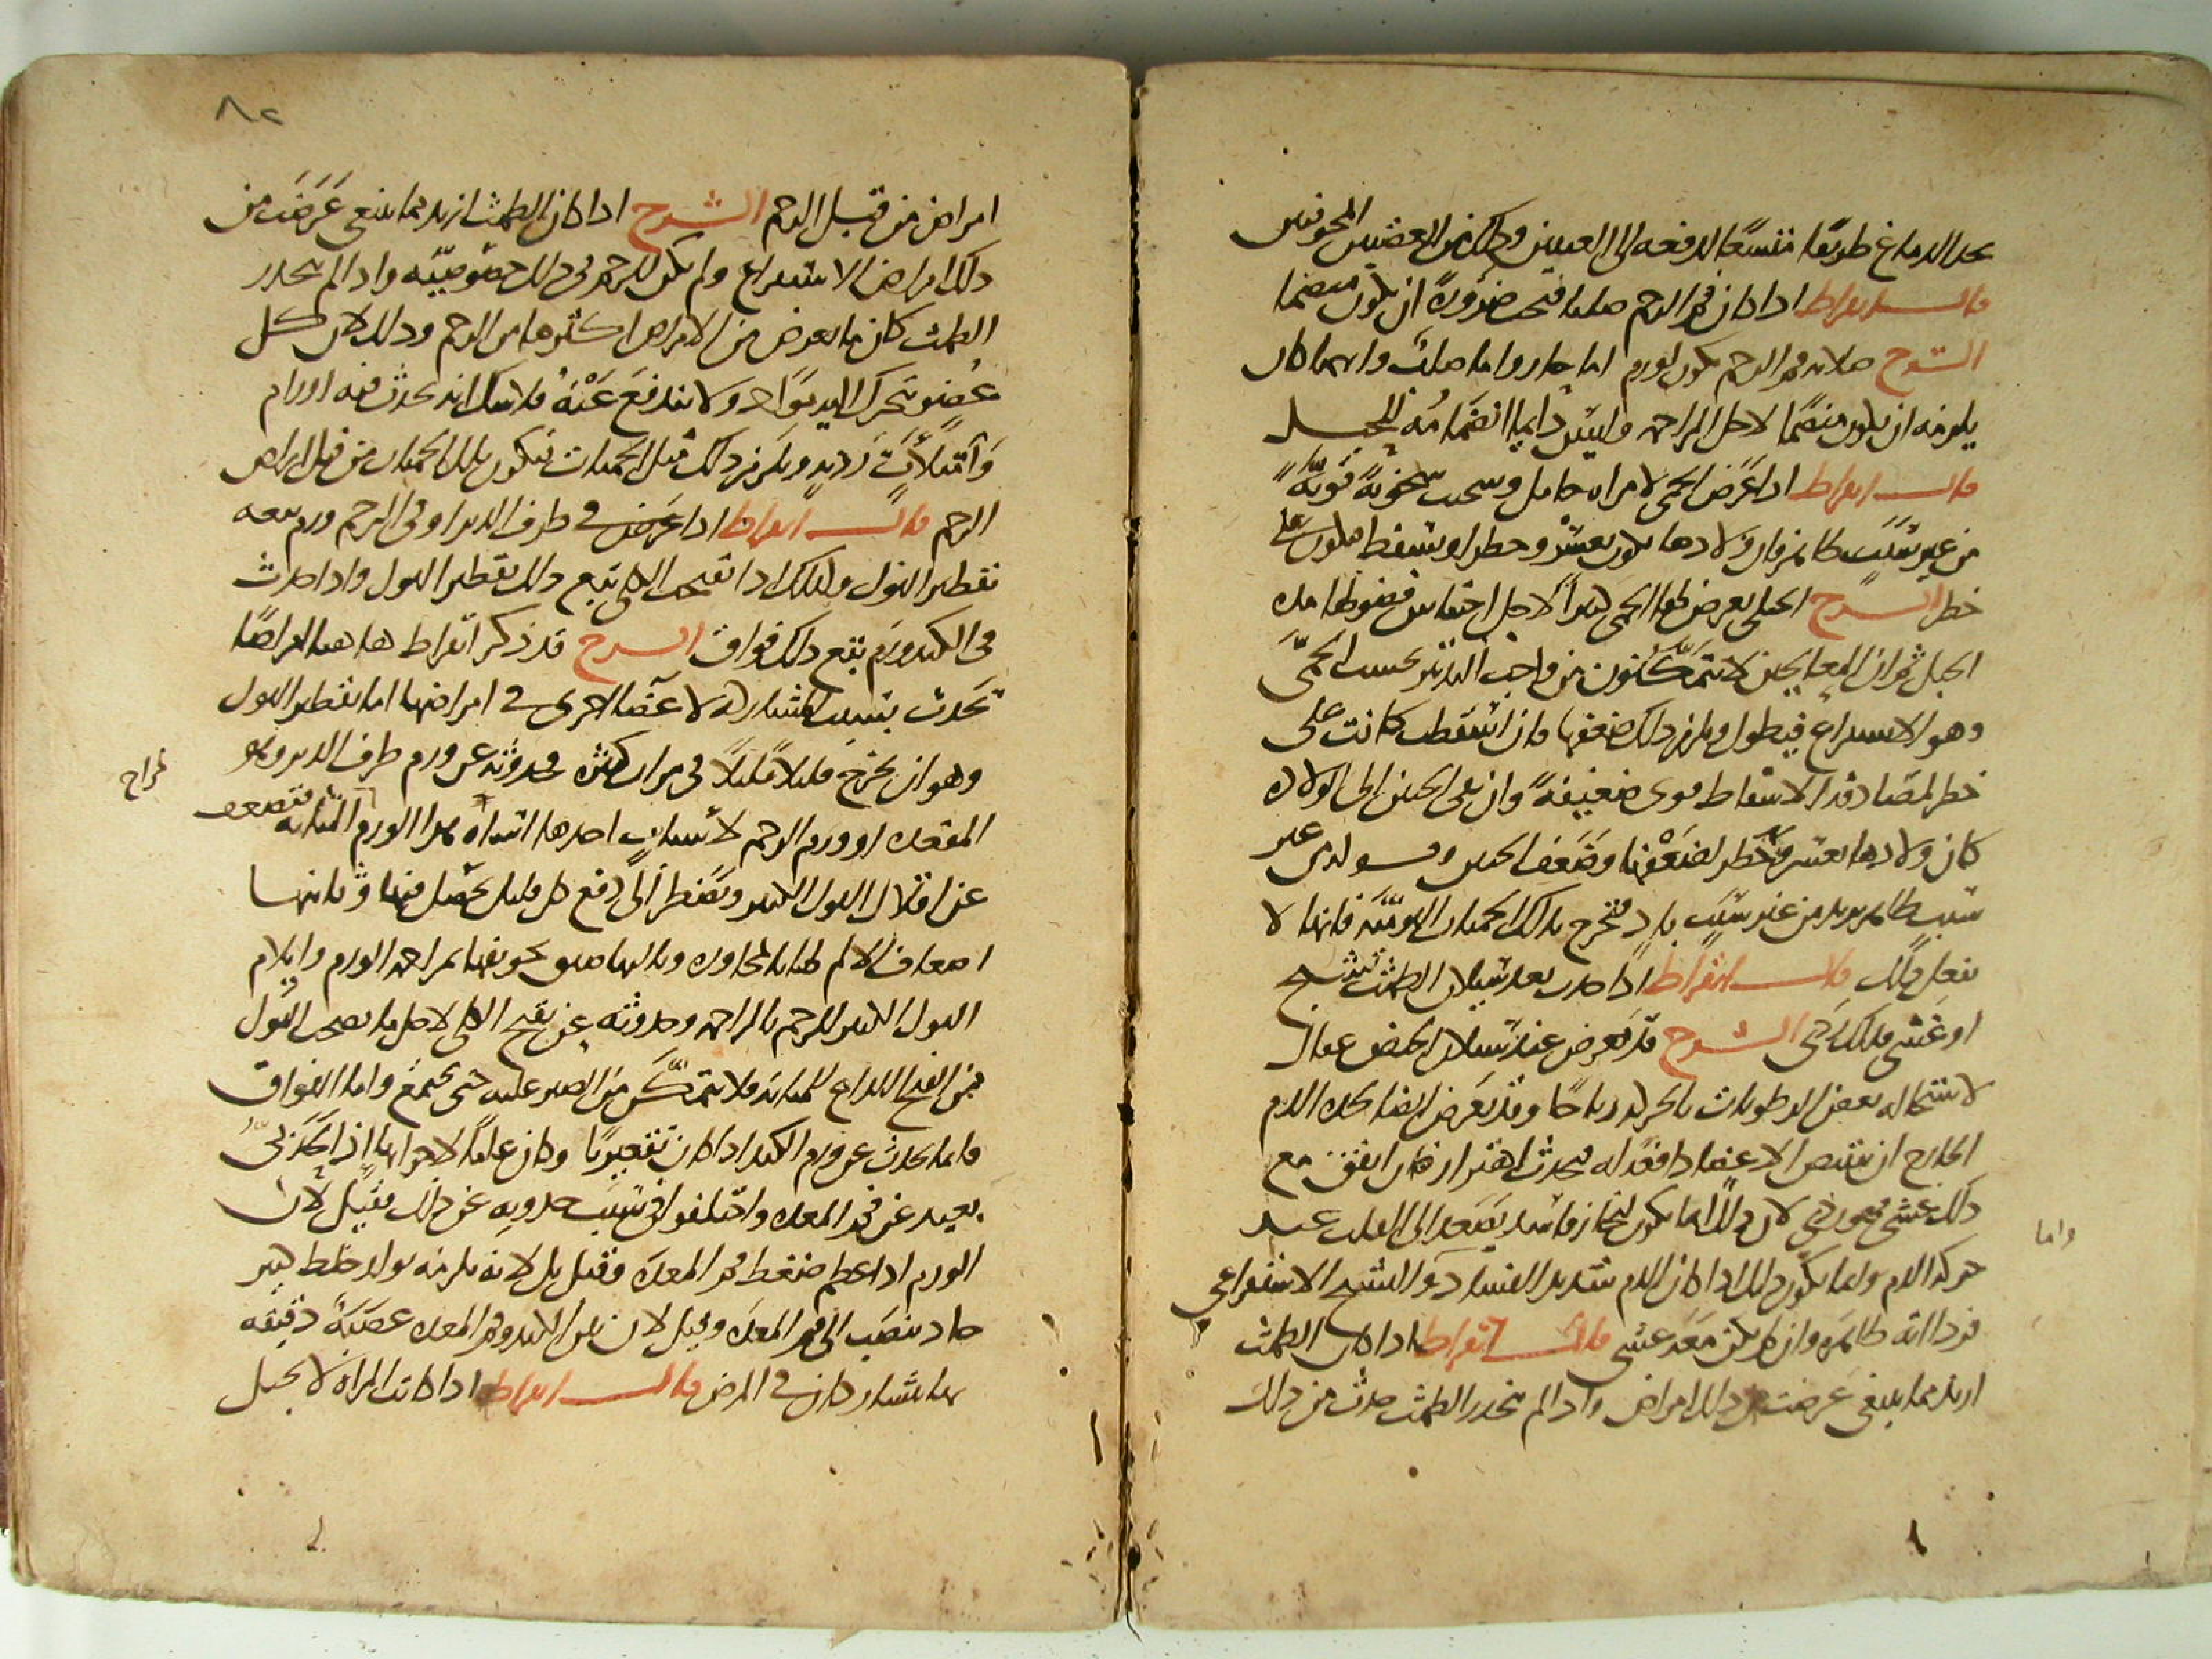 يجد الدماغ طريقا متسعا لدفعه الى العينين وذلك من العصبتين المجوفتين
قال ابقراط اذا كان فم الرحم صلبا فيجب ضرورة ان يكون منضما
الشرح صلابة فم الرحم تكون لورم اما حار واما صلب وايهما كان
يلزمه ان يكون منضما لاجل المزاحمة وليس دايما انضمامه للحبل
قال ابقراط اذا عرض الحمى لامراة حامل وسخنت سخونة قوية
من غير سبب ظاهر فان ولادها يكون بعسر وخطر او تسقط فتكون على
خطر الشرح الحبلى يعرض لها الحمى كثيرا لاجل احتباس فضولها مدة
الحبل ثم ان المعالجين لا يتمكنون من واجب التدبير بحسب الحمى
وهو الاستفراغ فيطول ويلزم ذلك ضعفها فان اسقطت كانت على
خطر لمصادفة الاسقاط قوى ضعيفة وان بقى الجنين الى الولادة
كان ولادها بعسر وخطر لضعفها وضعف الجنين وقوله من غير
سبب ظاهر يريد من غير سبب باد فيخرج بذلك الحميات اليومية فانها لا
تفعل ذلك قال ابقراط اذا حدث بعد سيلان الطمث تشنج
او غشى فذلك ردى الشرح قد يعرض عند سيلان الحيض
لاستحالة بعض الرطوبات بالحركة رياحا وقد يعرض ايضا لحدة الدم
الخارج ان تنقبض الاعضا دافعة له فيحدث اهتزاز فان اتفق مع
ذلك غشى فهو ردى لان ذلك انما يكون لبخار فاسد يصعد الى القلب عند
حركة الدم وانما يكون ذلك اذا كان الدم شديد الفساد واما التشنج الاستفراغى
فرداءته ظاهرة وان لم يكن معه غشى قال ابقراط اذا كان الطمث
ازيد مما ينبغى عرضت من ذلك امراض واذا لم ينحدر الطمث حدث من ذلك
واما
٨٢
امراض من قبل الرحم الشرح اذا كان الطمث ازيد مما ينبغى عرضت من
ذلك امراض الاستفراغ ولم يكن للرحم فى ذلك خصوصية واذا لم ينحدر
الطمث كان ما يعرض من الامراض اكثرها من الرحم وذلك لان كل
عضو تتحرك اليه مواد ولا تندفع عنه فلا شك انه يحدث فيه اورام
وامتلآت ردية ويلزم ذلك مثل الحميات فتكون تلك الحميات من قبل امراض
الرحم قال ابقراط اذا عرض فى طرف الدبر او فى الرحم ورم تبعه
تقطير البول وكذلك اذا تقيحت الكلى تبع ذلك تقطير البول واذا حدث
فى الكبد ورم تبع ذلك فواق الشرح قد ذكر ابقراط هاهنا امراضا
تحدث بسبب مشاركة الاعضا لاخرى فى امراضها اما تقطير البول
وهو ان يخرج قليلا قليلا فى مرات كثيرة فحدوثه عن ورم طرف الدبر وهو
المقعدة او ورم الرحم لاسباب احدها الورم المثانة فتضعف
عن اقلال البول الكثير وتضطر الى دفع كل قليل يحصل فيها وثانيها
اضعاف الالم لها بالمجاورة وثالثها ضيق تجويفها بمزاحمة الورم وايلام
البول الكثير للرحم بالمزاحمة وحدوثه عن تقيح الكلى لاجل ما يصحب البول
من القيح اللذاع للمثانة فلا تتمكن من الصبر عليه حتى يجتمع واما الفواق
فانما يحدث عن ورم الكبد اذا كان تقعيريا وكان عظيما
بعيد عن فم المعدة واختلفوا فى سبب حدوثه عن ذلك فقيل لان
الورم اذا عظم ضغط فم المعدة وقيل بل لانه يلزمه تولد خلط كثير
حاد ينصب الى فم المعدة وقيل لان بين الكبد وفم المعدة عصبة دقيقة
بها يتشاركان فى المرض قال ابقراط اذا كانت المراة لا تحبل